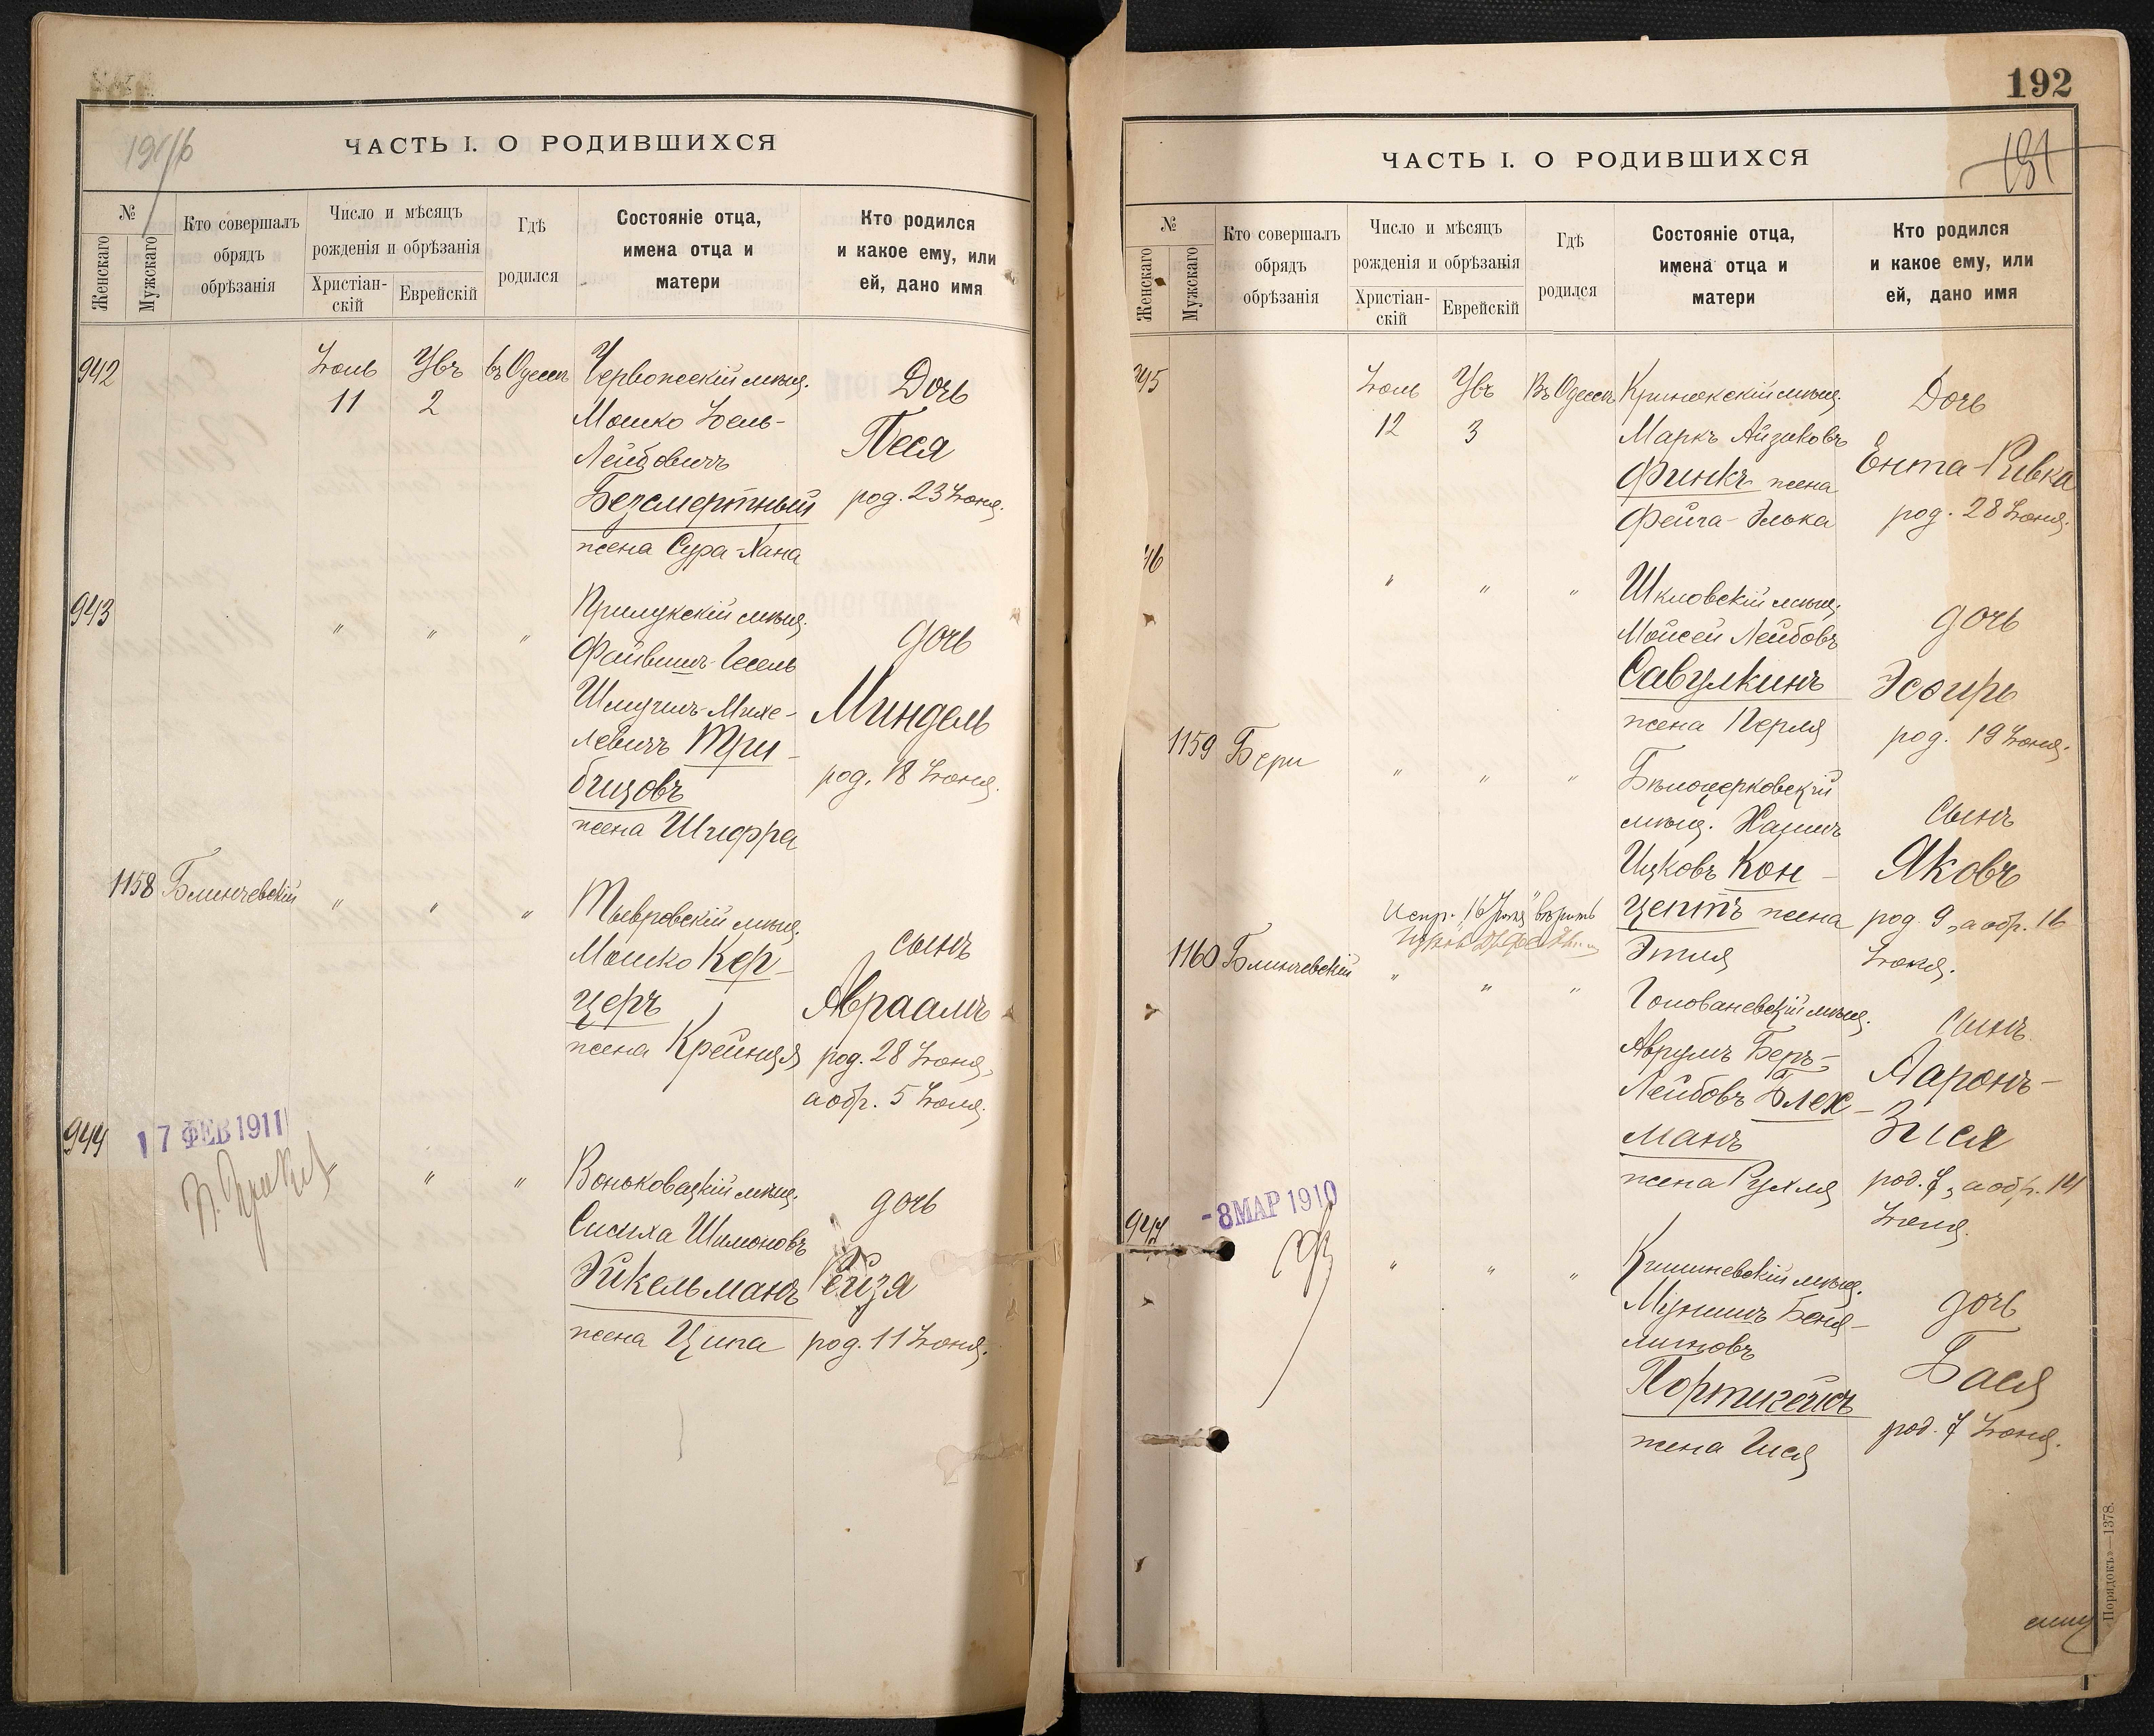 ЧАСТЬ I. О РОДИВШИХСЯ
№
Женскаго
Мужскаго
Кто совершалъ
обрядъ
обрѣзанія
Число и мѣсяцъ
рожденія и обрѣзанія
Христіан-
скій
Еврейскій
Гдѣ
родился
Состояніе отца,
имена отца и
матери
Кто родился
и какое ему, или
ей, дано имя
942
Іюль
11
2
въ Одессѣ
Мошко Іоель-
Лейбовичъ
Безсмертный
жена Сура-Хана
Дочь
Песя
род. 23 Іюня.
943
"
"
"
Прилукскій мѣщ.
Файвишъ-Гесель
бицовъ
жена Шифра
дочь
Миндель
род. 18 Іюня.
1158
Блинчевскій
"
"
"
Тывровскій мѣщ.
Мошко Кер-
церъ
жена Крейнця
сынъ
Авраамъ
род. 28 Іюня,
а обр. 5 Іюля.
944
17 ФЕВ 1911
"
"
Воньковецкій мѣщ.
Сисиха Шимоновъ
Эйкельманъ
жена Ципа
дочь
Рейзя
род. 11 Іюня.
192
191
ЧАСТЬ I. О РОДИВШИХСЯ
№
Женскаго
Мужскаго
Кто совершалъ
обрядъ
обрѣзанія
Число и мѣсяцъ
рожденія и обрѣзанія
Христіан-
скій
Еврейскій
Гдѣ
родился
Состояніе отца,
имена отца и
матери
Кто родился
и какое ему, или
ей, дано имя
945
Іюль
12
3
Въ Одессѣ
Маркъ Айзиковъ
Финкъ жена
Фейга-Элька
Дочь
Ента-Ривка
род. 28 Іюня.
46
"
"
"
Шкловскій мѣщ.
Мойсей Лейбовъ
Савулкинъ
жена Перля
дочь
Эсѳирь
род. 19 Іюня.
1159
Бери
"
"
"
Бѣлоцерковскій
мѣщ. Хаимъ
Ицковъ Кон-
цептъ жена
Этля
сынъ
Яковъ
род. 9, а обр. 16
1160
Блинчевскій
"
"
"
Голованевскій мѣщ.
Аврумъ Беръ-
Лейбовъ Блех-
манъ
жена Рухля
сынъ
Ааронъ-
Зися
род. 7, а обр. 14
-8 МАР 1910
"
"
"
Кишиневскій мѣщ.
дочь
Бася
род. 7 Іюня.
Порядокъ»—1378.